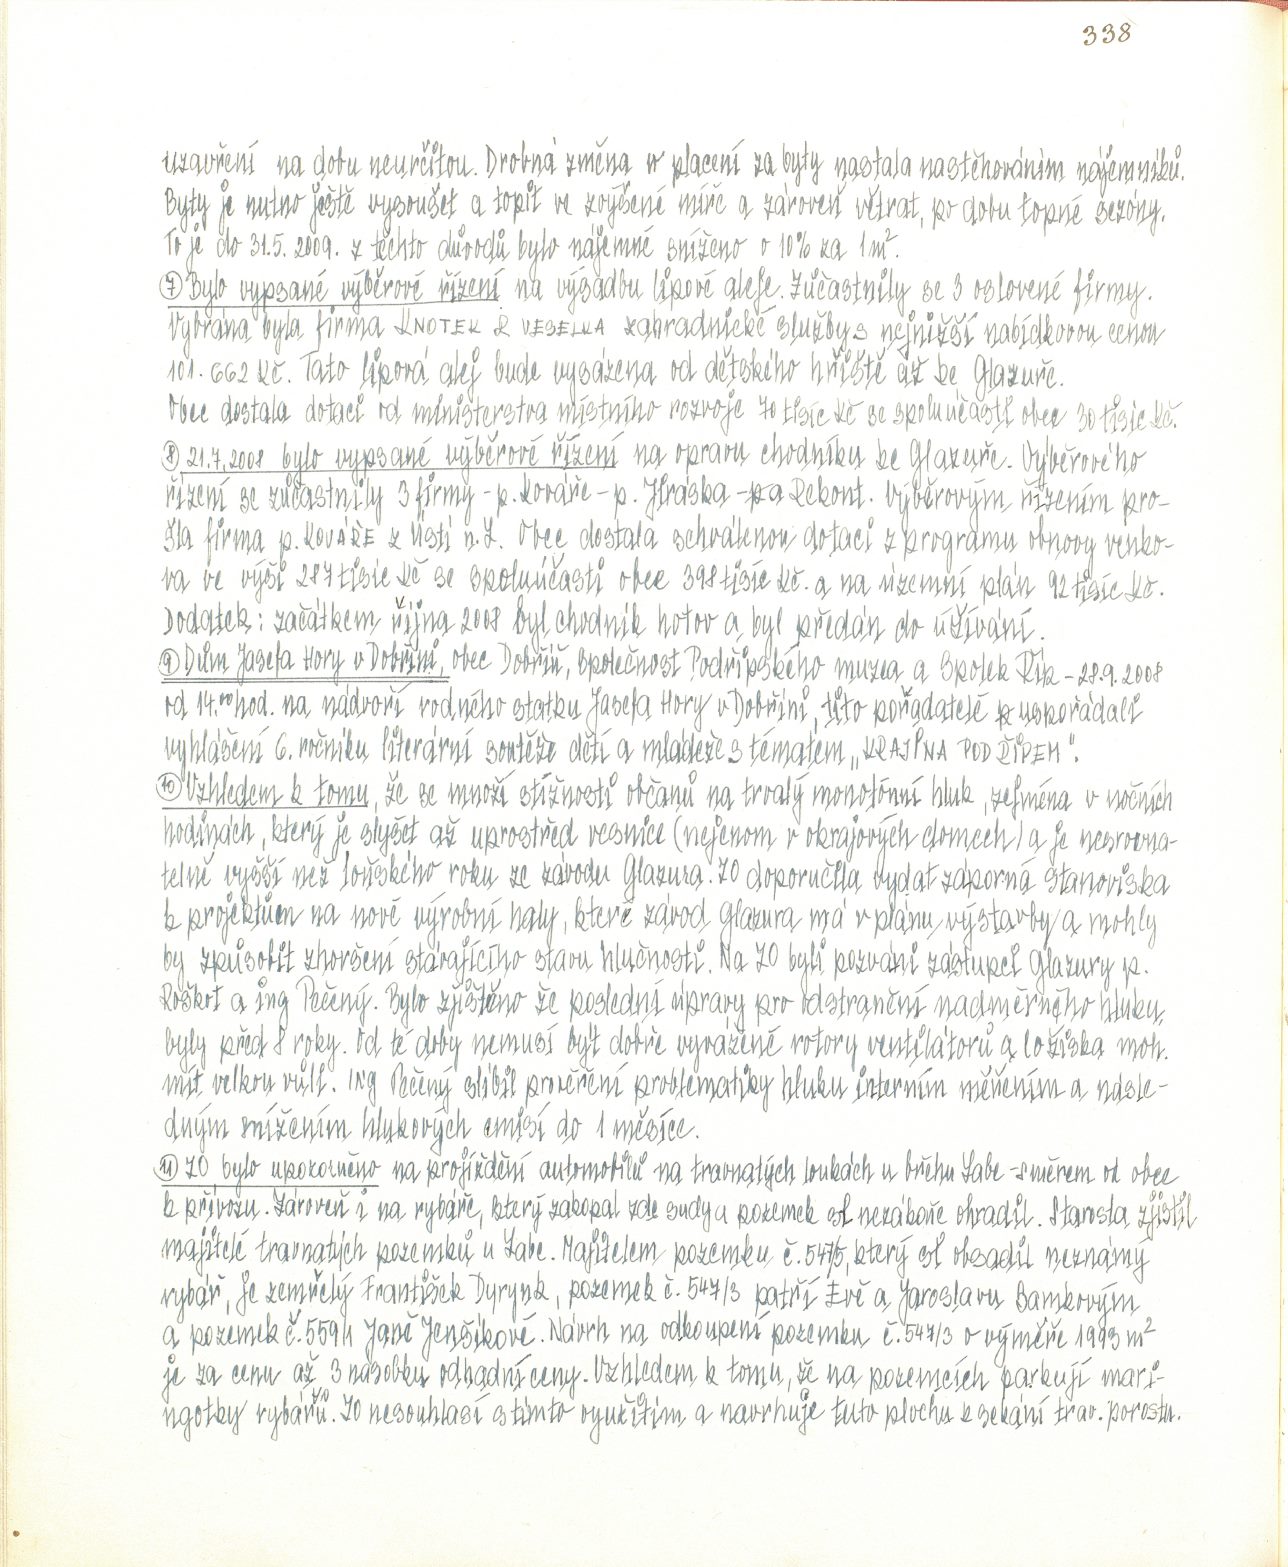 338
uzavření na dobu neurčitou. Drobná změna v placení za byty nastala nastěhováním nájemníků.
Byty je nutno ještě vysoušet a topit ve zvýšené míře a zároveň větrat, po dobu topné sezóny.
To je do 31.5. 2009. z těchto důvodů bylo nájemné sníženo o 10% za 1m².
⑦ Bylo vypsané výběrové řízení na výsadbu lipové aleje. Zúčastnily se 3 oslovené firmy.
Vybrána byla firma KNOTEK & VESELKA zahradnické služby s nejnižší nabídkovou cenou
101. 662 Kč. Tato lipová alej bude vysázena od dětského hřiště až ke Glazuře.
Obec dostala dotaci od ministerstva místního rozvoje 70 tisíc Kč se spoluúčastí obce 30 tisíc Kč.
⑧ 21.7.2008 bylo vypsané výběrové řízení na opravu chodníku ke Glazuře. Výběrového
řízení se zúčastnily 3 firmy - p. Kováře - p. Jiráska - pa Rekont. Výběrovým řízením pro-
šla firma p. KOVÁŘE z Ústí n. L. Obec dostala schválenou dotaci z programu obnovy venko-
va ve výši 287 tisíc Kč se spoluúčastí obce 398 tisíc Kč. a na územní plán 92 tisíc Kč.
Dodatek: začátkem října 2008 byl chodník hotov a byl předán do užívání.
⑨ Dům Josefa Hory v Dobříni, obec Dobříň, Společnost Podřipského muzea a Spolek Řík - 28.9. 2008
od 14.⁰⁰ hod. na nádvoří rodného statku Josefa Hory v Dobříni, tito pořadatelé uspořádali
vyhlášení 6. ročníku literární soutěže dětí a mládeže s tématem „KRAJINA POD ŘÍPEM".
⑩ Vzhledem k tomu, že se množí stížnosti občanů na trvalý monotónní hluk, zejména v nočních
hodinách, který je slyšet až uprostřed vesnice (nejenom v okrajových domech) a je nesrovna-
telně vyšší než loňského roku ze závodu Glazura. ZO doporučila vydat záporná stanoviska
k projektům na nové výrobní haly, které závod Glazura má v plánu výstavby a mohly
by způsobit zhoršení stávajícího stavu hlučnosti. Na ZO byli pozváni zástupci Glazury p.
Roškot a ing Pečený. Bylo zjištěno že poslední úpravy pro odstranění nadměrného hluku,
byly před 8 roky. Od té doby nemusí být dobře vyvážené rotory ventilátorů a ložiska moh.
mít velkou vůli. Ing Pečený slíbil prověření problematiky hluku interním měřením a násle-
dným snížením hlukových emisí do 1 měsíce.
⑪ ZO bylo upozorněno na projíždění automobilů na travnatých loukách u břehu Labe - směrem od obce
k přívozu. Zároveň i na rybáře, který zakopal zde sudy a pozemek si nezákoně ohradil. Starosta zjistil
majitele travnatých pozemků u Labe. Majitelem pozemku č. 547/5, který si obsadil neznámý
rybář, je zemřelý František Dyrynk, pozemek č. 547/3 patří Evě a Jaroslavu Bamkovým
a pozemek č. 559/1 Janě Jenšíkové. Návrh na odkoupení pozemku č. 547/3 o výměře 1993 m²
je za cenu až 3 násobku odhadní ceny. Vzhledem k tomu, že na pozemcích parkují marin-
gotky rybářů. ZO nesouhlasí s tímto využitím a navrhuje tuto plochu k sekání trav. porostu.